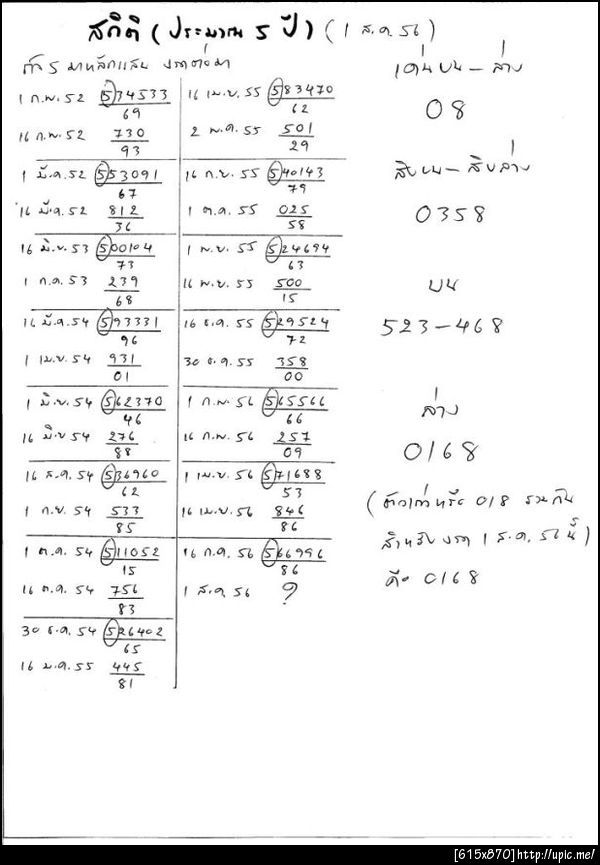 สถิติ (ประมาณ 5 ปี) (1 ส.ค. 56)
ถ้า 5 มาหลักแสน งวดต่อมา
1 ก.พ. 52 534533
69
16 ก.พ. 52 730
93
1 มี.ค. 52 553091
67
16 มี.ค. 52 812
36
16 มิ.ย. 53 500104
73
1 ก.ค. 53 239
68
16 มี.ค. 54 593331
96
1 เม.ย. 54 931
01
1 มิ.ย. 54 562370
46
16 มิ.ย 54 276
88
16 ส.ค. 54 536960
62
1 ก.ย. 54 533
85
1 ต.ค. 54 511052
15
16 ต.ค. 54 756
83
30 ธ.ค. 54 526402
65
16 ม.ค. 55 445
81
16 เม.ย. 55 583470
62
2 พ.ค. 55 501
29
16 ก.ย. 55 540143
79
1 ต.ค. 55 025
58
1 พ.ย. 55 524694
63
16 พ.ย. 55 500
15
16 ธ.ค. 55 529524
72
30 ธ.ค. 55 358
00
1 ก.พ. 56 565566
66
16 ก.พ. 56 257
09
1 เม.ย. 56 571688
53
16 เม.ย. 56 846
86
16 ก.ค. 56 566996
86
1 ส.ค. 56 ?
เด่นบน - ล่าง
08
สิบบน - สิบล่าง
0358
บน
523 - 468
ล่าง
0168
018 รวมกัน
สำหรับงวด 1 ส.ค. 56 นี้)
คือ 0168
[615x870]http://upic.me/